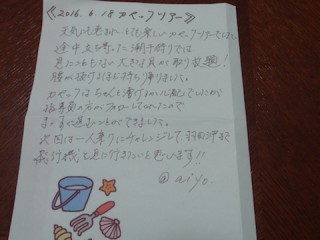 《2016.6.18 カヤックツアー》
天気にも恵まれ、とても楽しいカヤックツアーでした。
途中立ち寄った潮干狩りでは
見たこともない大きな貝が取り放題!
腰が抜けるほど持ち帰りました。
カヤックはちゃんと漕げるか心配でしたが
指導員の方がフォローしてくれたので
まっすぐ進むことができました。
次回は一人乗りにチャレンジして、
飛行機を見に行きたいと思います!!